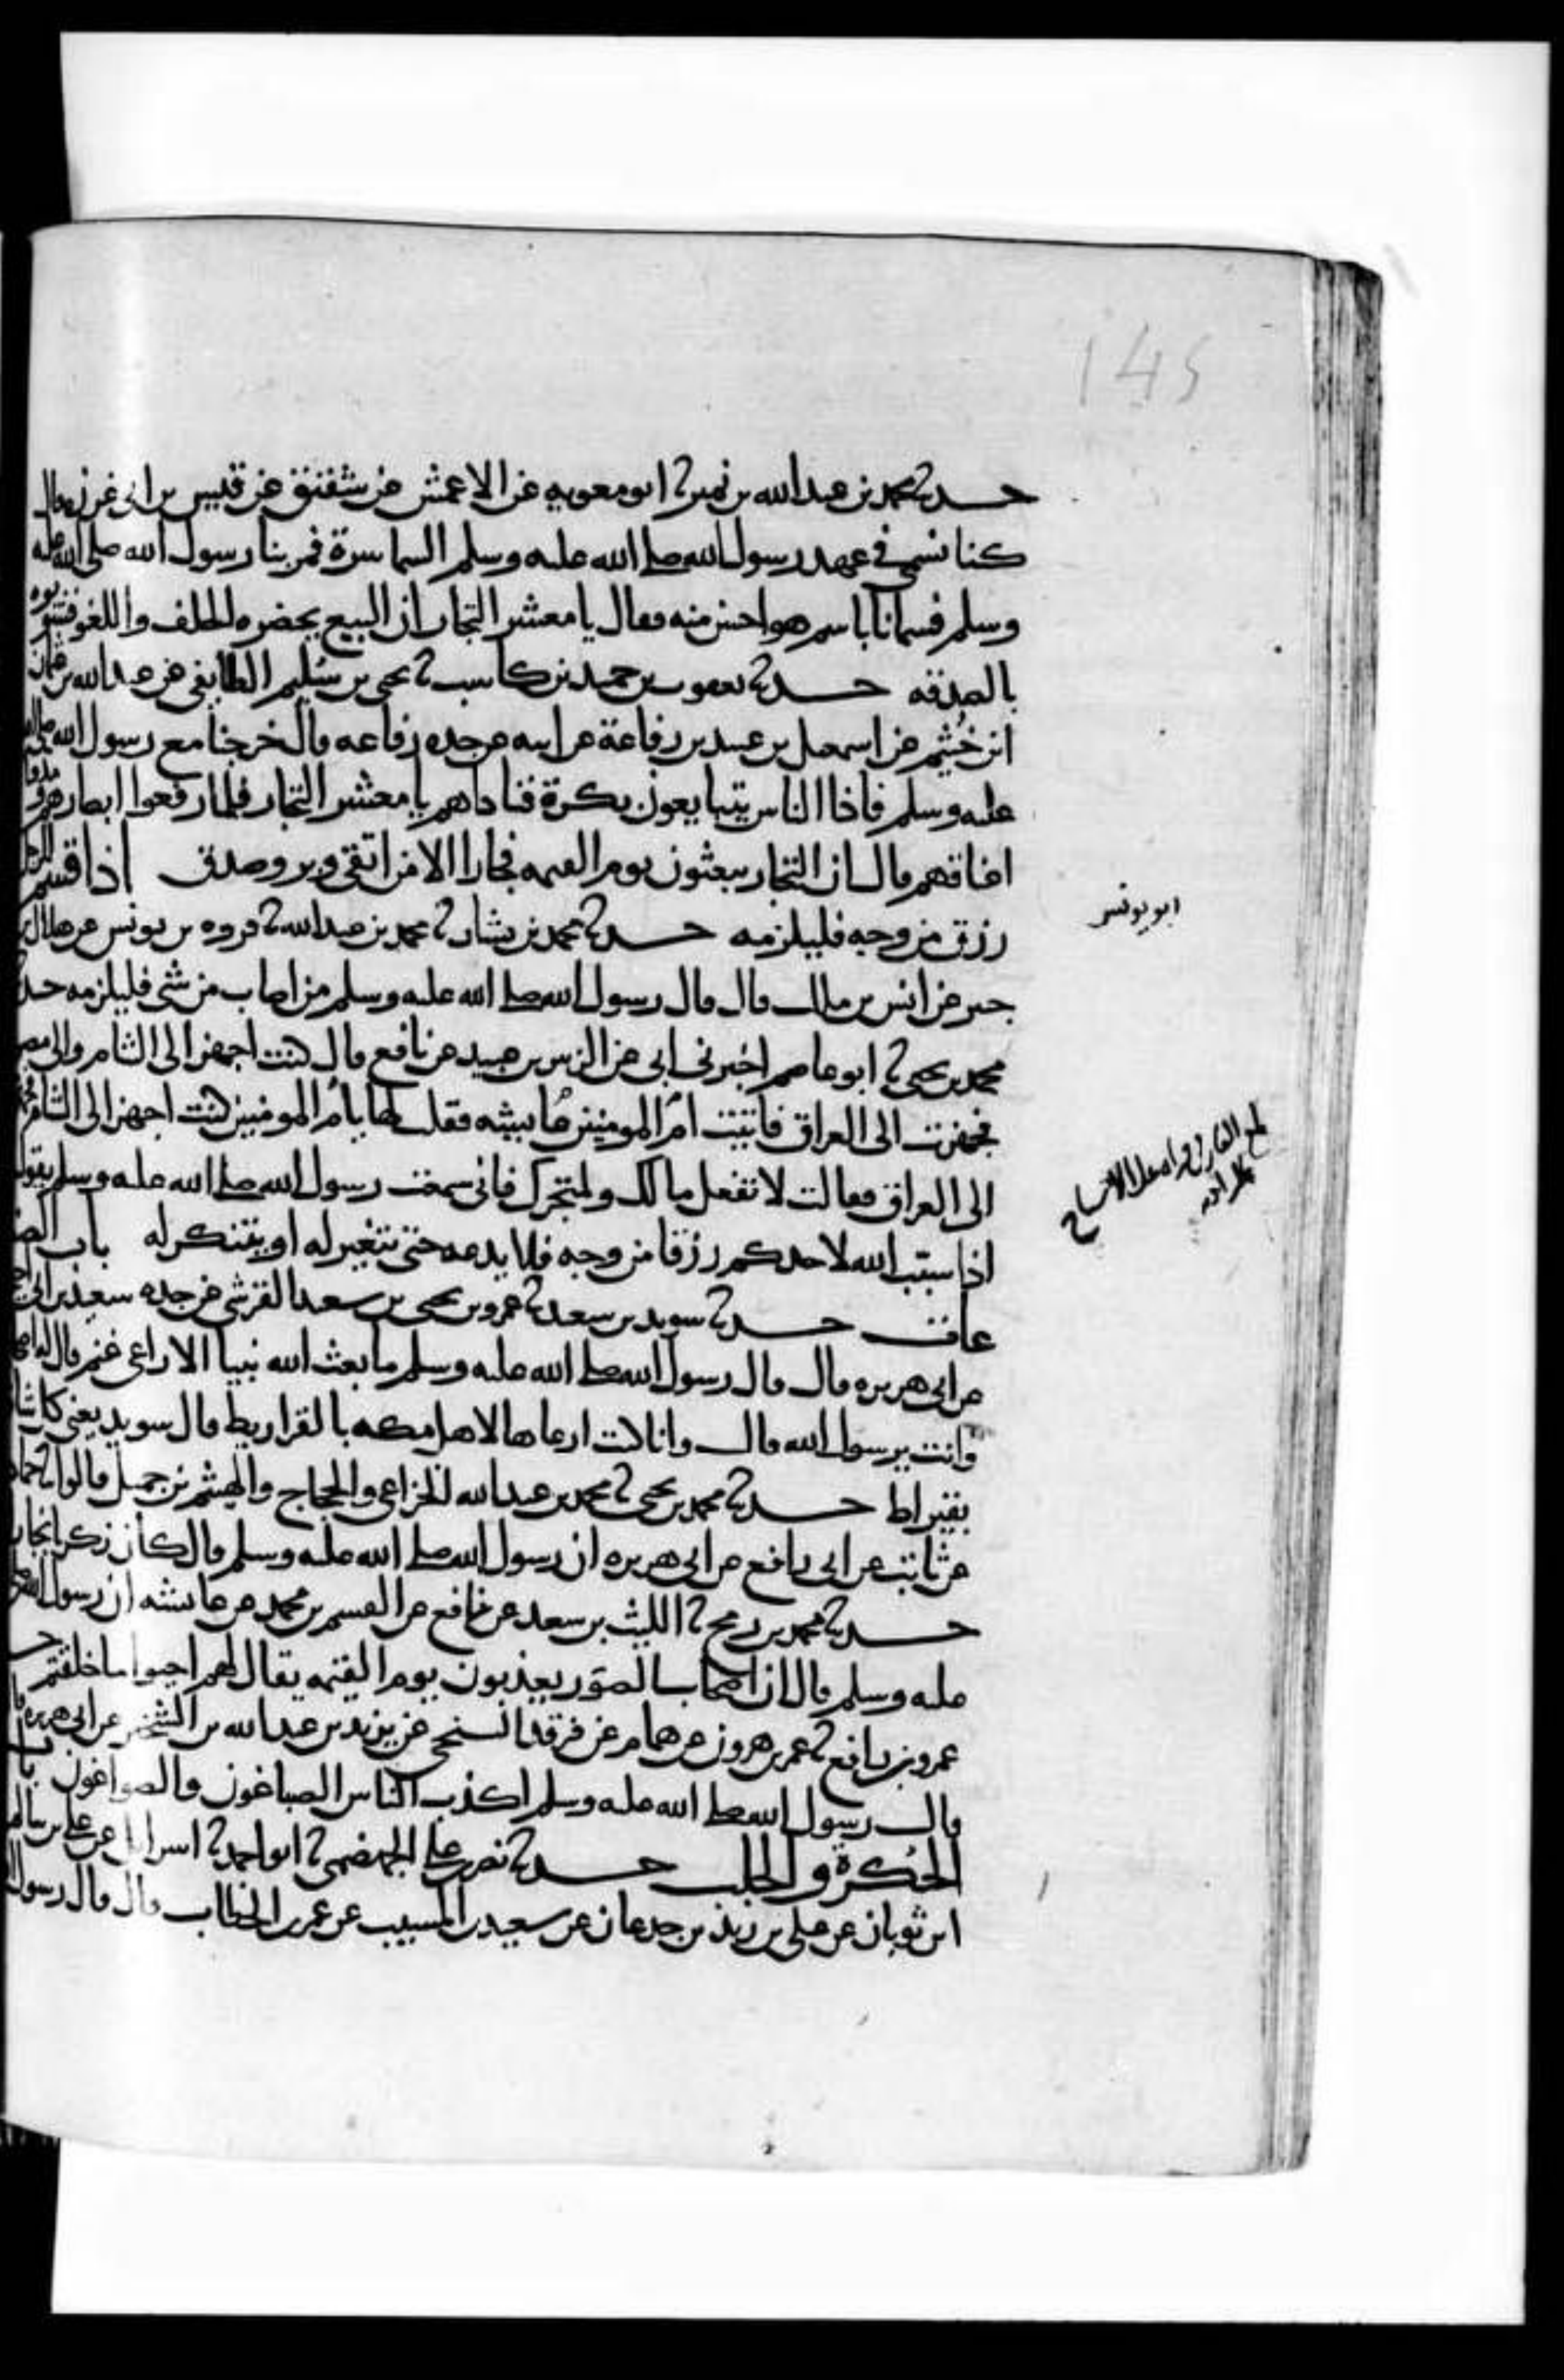 145
حدثنا محمد بن عبد الله بن نمير ثنا ابو معويه عن الاعمش عن شقيق عن قيس بن ابي غرزه قال
كنا نسمى في عهد رسول الله صلى الله عليه وسلم السماسرة فمر بنا رسول الله صلى الله عليه
وسلم فسمانا باسم هو احسن منه فقال يا معشر التجار ان البيع يحضره الحلف واللغو فشوبوه
بالصدقه حدثنا يعقوب بن حميد بن كاسب ثنا يحيى بن سليم الطايفي عن عبد الله بن عثمان
ابن خثيم عن اسمعيل بن عبيد بن رفاعة عن ابيه عن جده رفاعه قال خرجنا مع رسول الله صلى الله
عليه وسلم فاذا الناس يتبايعون بكرة فناداهم يا معشر التجار فلما رفعوا ابصارهم ومدوا
اعناقهم قال ان التجار يبعثون يوم القيمه فجارا الا من اتقى وبر وصدق اذا قسم للرجل
رزق من وجه فليلزمه حدثنا محمد بن بشار ثنا محمد بن عبد الله ثنا فروه بن يونس عن هلال بن
ابو يونس
جبير عن انس بن مالك قال قال رسول الله صلى الله عليه وسلم من اصاب من شي فليلزمه حدثنا
محمد بن يحيى ثنا ابو عاصم اخبرني ابي عن الزبير بن عبيد عن نافع قال كنت اجهز الى الشام والى مصر
فجهزت الى العراق فاتيت ام المومنين عايشه فقلت لها يا ام المومنين كنت اجهز الى الشام فجهزت
الى العراق فقالت لا تفعل مالك ولمتجرك فاني سمعت رسول الله صلى الله عليه وسلم يقول
اذا سبب الله لاحدكم رزقا من وجه فلا يدعه حتى يتغير له او يتنكر له باب الصنا
عات حدثنا سويد بن سعيد ثنا عمرو بن يحيى بن سعيد القرشي عن جده سعيد بن ابي احيحة
عن ابي هريره قال قال رسول الله صلى الله عليه وسلم ما بعث الله نبيا الا راعي غنم قال له اصحابه
وانت يرسول الله قال وانا كنت ارعاها لاهل مكه بالقراريط قال سويد يعني كل شاة
بقيراط حدثنا محمد بن يحيى ثنا محمد بن عبد الله الخزاعي والحجاج والهيثم بن جميل قالوا ثنا حماد
عن ثابت عن ابي رافع عن ابي هريره ان رسول الله صلى الله عليه وسلم قال كان زكريا نجارا
حدثنا محمد بن رمح ثنا الليث بن سعد عن نافع عن القسم بن محمد عن عايشه ان رسول الله صلى الله
عليه وسلم قال ان اصحاب الصور يعذبون يوم القيمه يقال لهم احيوا ما خلقتم حدثنا
عمرو بن رافع ثنا عمر بن هرون عن همام عن فرقد السبخي عن يزيد بن عبد الله بن الشخير عن ابي هريره قال
قال رسول الله صلى الله عليه وسلم اكذب الناس الصباغون والصواغون باب
الحكرة والجلب حدثنا نصر بن علي الجهضمي ثنا ابو احمد ثنا اسرايل عن علي بن سالم
ابن ثوبان عن علي بن زيد بن جدعان عن سعيد بن المسيب عن عمر بن الخطاب قال قال رسول الله